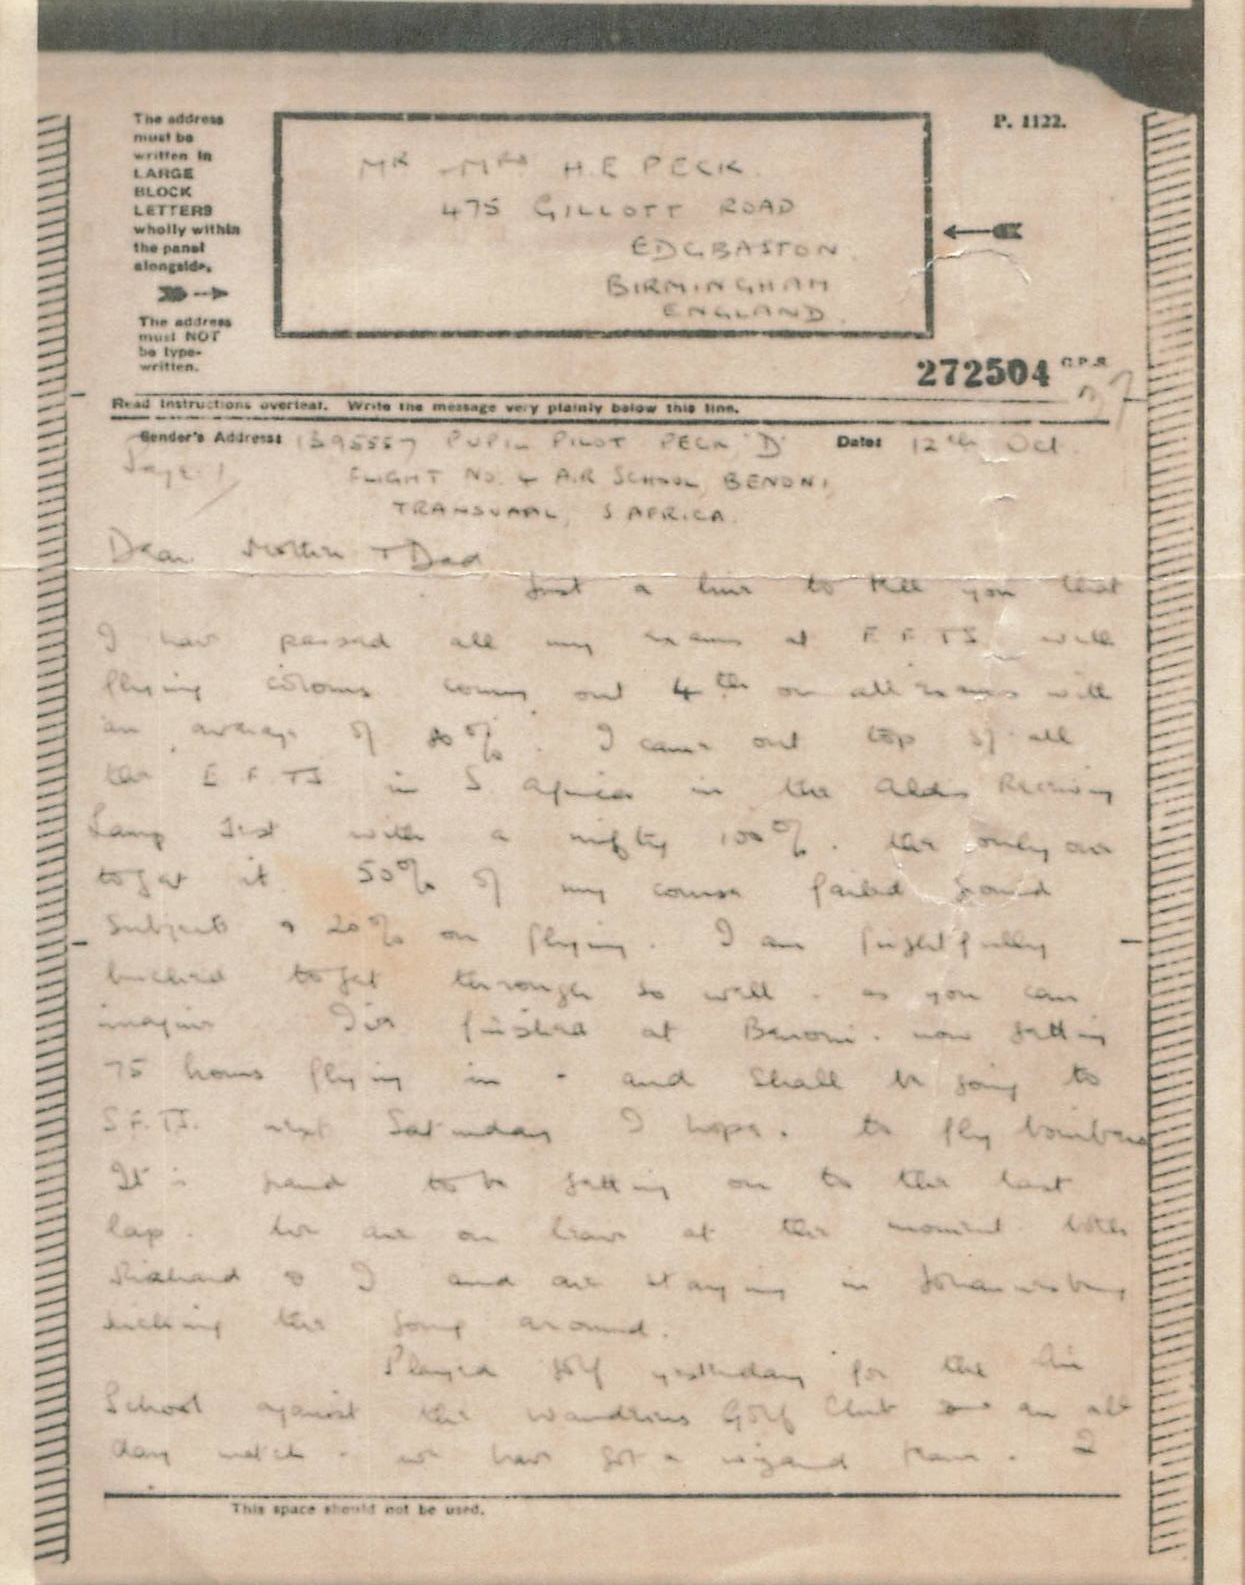 The address
must be
written in
LARGE
BLOCK
LETTERS
wholly within
the panel
alongside.
The address
must NOT
be type-
written.
MR MRS H.E PECK.
475 GILLOTT ROAD
EDGBASTON.
BIRMINGHAM
ENGLAND.
P. 1122.
272504
Read instructions overleaf. Write the message very plainly below this line.
Sender's Address: 1395557 PUPIL PILOT PECK 'D' Date: 12th Oct.
Page 1 FLIGHT NO. 4 AIR SCHOOL, BENONI,
TRANSVAAL, S AFRICA.
Dear Mother + Dad
Just a line to tell you that
I have passed all my exams at E F T S with
flying colours coming out 4th on all exams with
an average of 80%. I came out top of all
the E F T S in S. Africa in the Aldis Receiving
Lamp Test with a nifty 100%. the only one
to get it. 50% of my course failed ground
subjects & 20% on flying. I am frightfully
bucked to get through so well. as you can
imagine I've finished at Benoni. now getting
75 hours flying in - and shall be going to
S.F.T.S. next Saturday I hope. to fly bombers
It is grand to be getting on to the last
lap. We are on leave at the moment both
Richard & I and are staying in Johannesburg
kicking the gong around.
Played golf yesterday for the Air
School against the Wanderers Golf Club an all
day match - we have got a wizard team. I
This space should not be used.